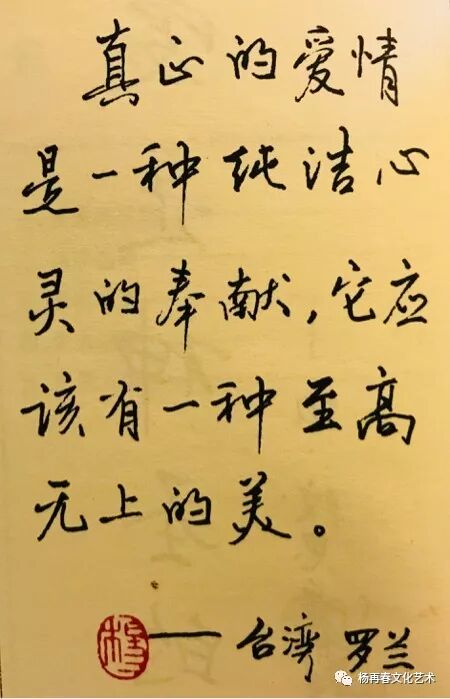 真正的爱情
是一种纯洁心
灵的奉献,它应
该有一种至高
无上的美。
——台湾 罗兰
杨再春文化艺术